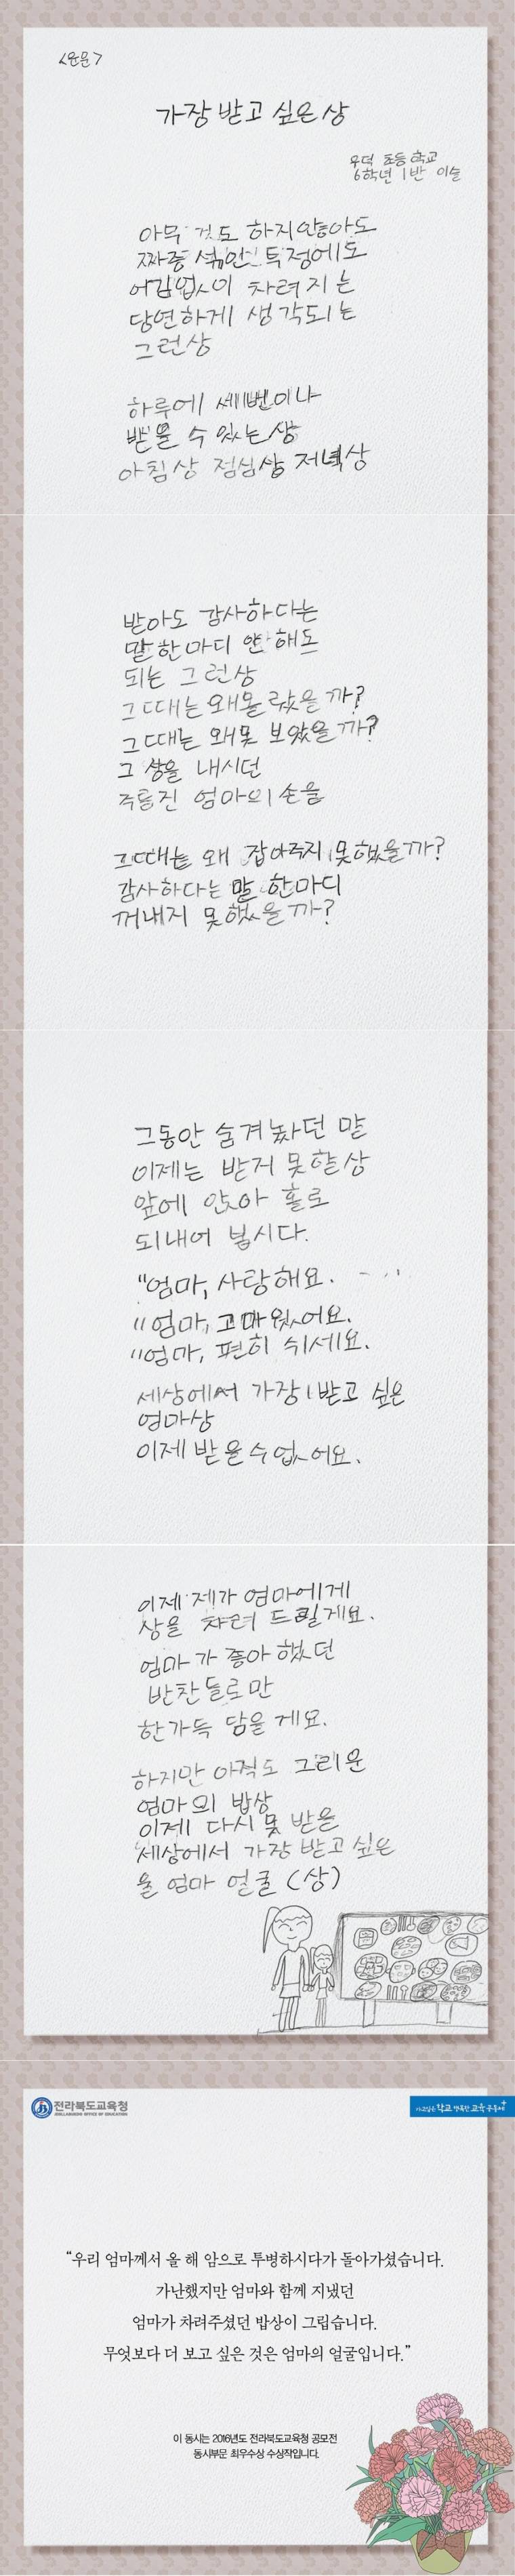 <운문>
가장 받고 싶은 상
우덕 초등학교
6학년 1반 이슬
아무 것도 하지않아도
짜증 섞인 투정에도
어김없이 차려지는
당연하게 생각되는
그런상
하루에 세번이나
받을 수 있는 상
아침상 점심상 저녁상
받아도 감사하다는
말 한마디 안 해도
되는 그런상
그때는 왜 몰랐을까?
그때는 왜 못 보았을까?
그 상을 내시던
주름진 엄마의 손을
그때는 왜 잡아주지 못했을까?
감사하다는 말 한마디
꺼내지 못했을까?
그동안 숨겨놨던 말
이제는 받지 못할상
앞에 앉아 홀로
되내어 봅시다.
"엄마, 사랑해요.
"엄마, 고마웠어요.
"엄마, 편히 쉬세요.
세상에서 가장 받고 싶은
엄마상
이제 받을수없어요.
이제 제가 엄마에게
상을 차려 드릴게요.
엄마가 좋아했던
반찬들로만
한가득 담을게요.
하지만 아직도 그리운
엄마의 밥상
이제 다시 못 받을
세상에서 가장 받고 싶은
울 엄마 얼굴 (상)
전라북도교육청
JEOLLABUKDO OFFICE OF EDUCATION
가고싶은 학교 행복한 교육공동체
“우리 엄마께서 올 해 암으로 투병하시다가 돌아가셨습니다.
가난했지만 엄마와 함께 지냈던
엄마가 차려주셨던 밥상이 그립습니다.
무엇보다 더 보고 싶은 것은 엄마의 얼굴입니다.”
이 동시는 2016년도 전라북도교육청 공모전
동시부문 최우수상 수상작입니다.